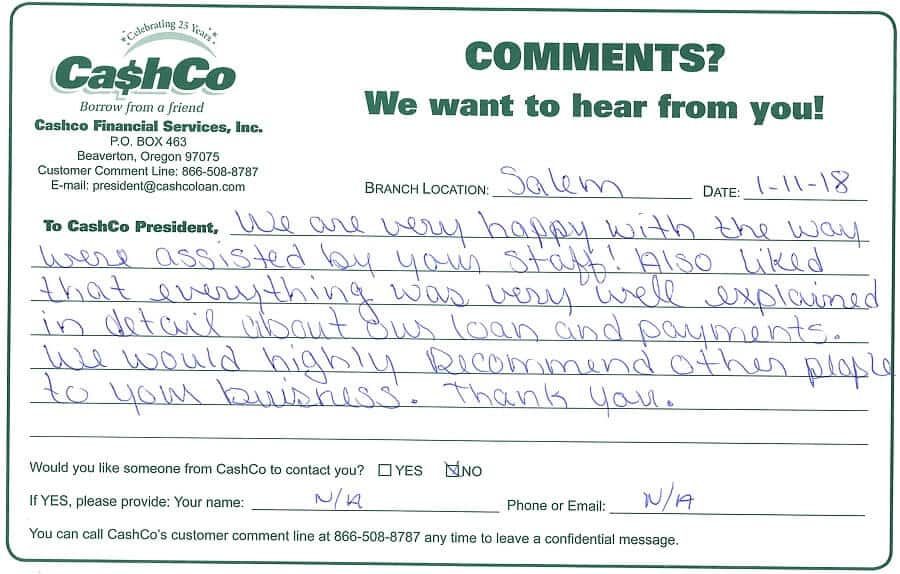 Celebrating 25 Years
Ca$hCo
Borrow from a friend
Cashco Financial Services, Inc.
P.O. BOX 463
Beaverton, Oregon 97075
Customer Comment Line: 866-508-8787
E-mail: president@cashcoloan.com
COMMENTS?
We want to hear from you!
BRANCH LOCATION: Salem DATE: 1-11-18
To CashCo President, We are very happy with the way
were assisted by your staff! Also liked
that everything was very well explained
in detail about our loan and payments.
We would highly Recommend other plople
to your buisness. Thank you.
Would you like someone from CashCo to contact you? YES NO
If YES, please provide: Your name: N/A Phone or Email: N/A
You can call CashCo's customer comment line at 866-508-8787 any time to leave a confidential message.